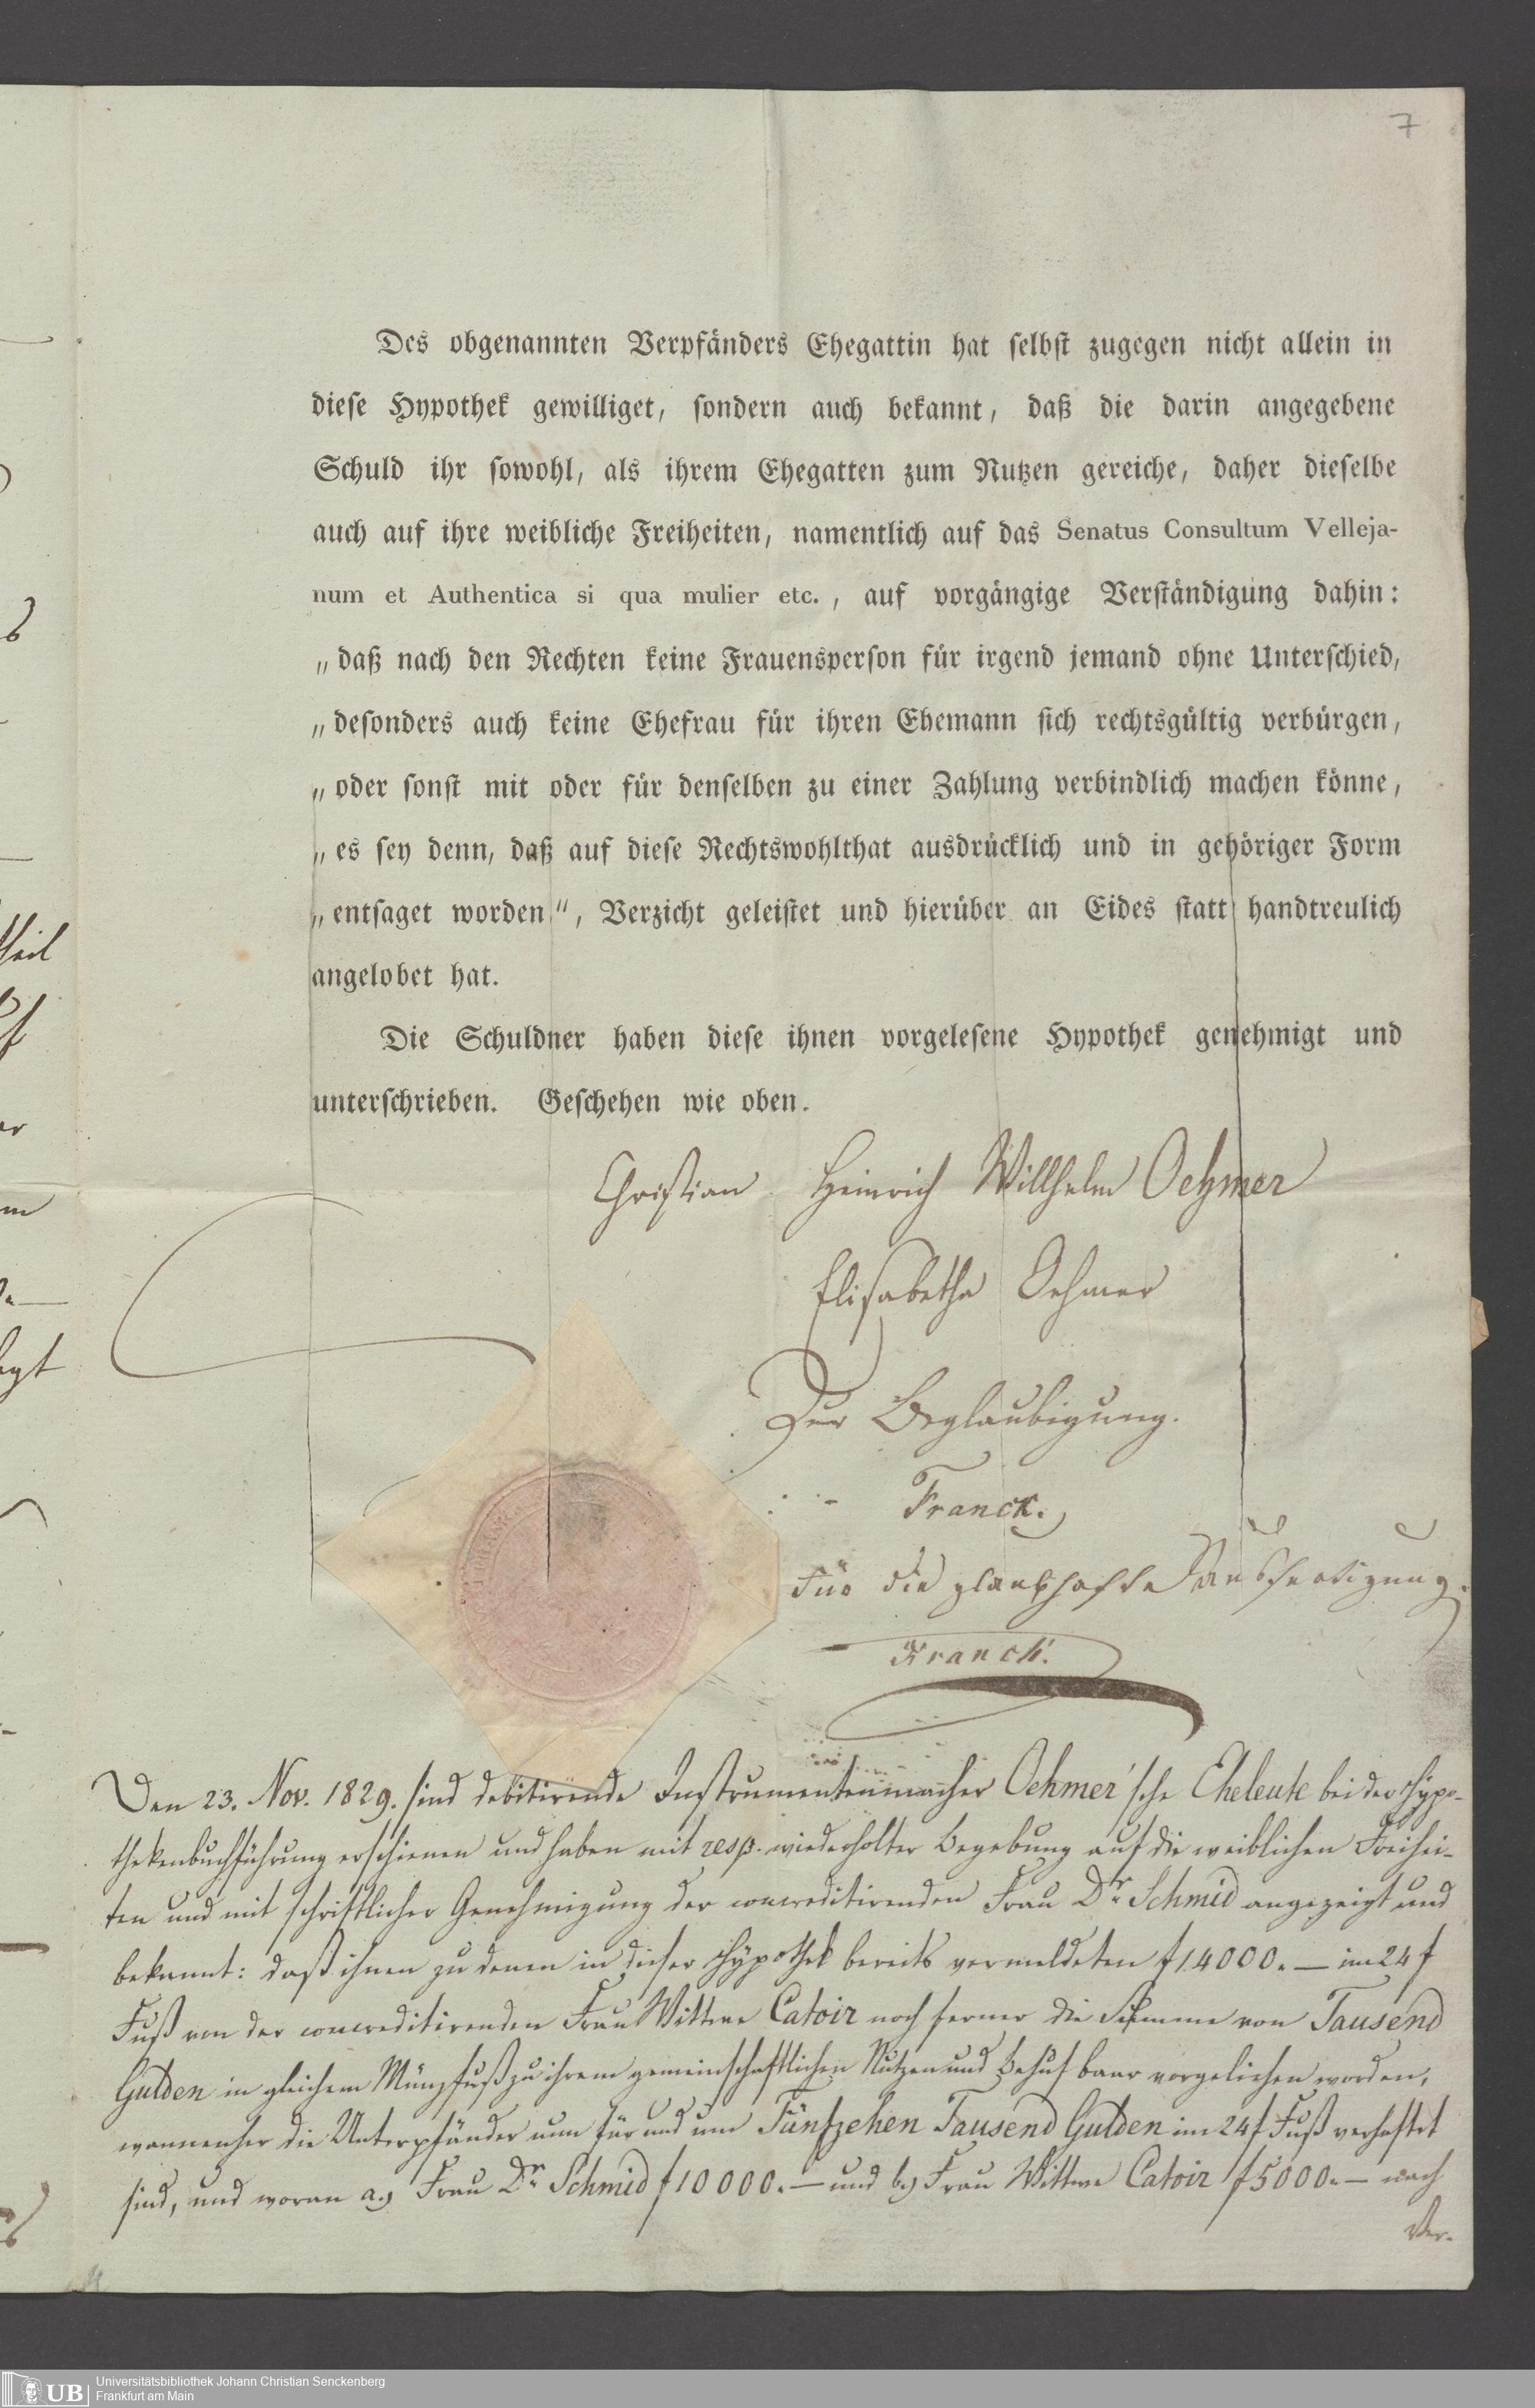 7
Des obgenannten Verpfänders Ehegattin hat selbst zugegen nicht allein in
diese Hypothek gewilliget, sondern auch bekannt, daß die darin angegebene
Schuld ihr sowohl, als ihrem Ehegatten zum Nutzen gereiche, daher dieselbe
auch auf ihre weibliche Freiheiten, namentlich auf das Senatus Consultum Velleja-
num et Authentica si qua mulier etc., auf vorgängige Verständigung dahin:
„daß nach den Rechten keine Frauensperson für irgend jemand ohne Unterschied,
„desonders auch keine Ehefrau für ihren Ehemann sich rechtsgültig verbürgen,
„oder sonst mit oder für denselben zu einer Zahlung verbindlich machen könne,
„es sey denn, daß auf diese Rechtswohlthat ausdrücklich und in gehöriger Form
„entsaget worden“, Verzicht geleistet und hierüber an Eides statt handtreulich
angelobet hat.
Die Schuldner haben diese ihnen vorgelesene Hypothek genehmigt und
unterschrieben. Geschehen wie oben.
Christian Heinrich Willhelm Oehmer
Elisabetha Oehmer
Zur Beglaubigung.
Franck.
Für die glaubhafte Ausfertigung.
Franck.
Den 23. Nov. 1829. sind debitirende Instrumentenmacher Oehmer'sche Eheleute bei der Hypo-
thekenbuchführung erschienen und haben mit resp. wiederholter Begebung auf die weiblichen Freihei-
ten und mit schriftlicher Genehmigung der concreditirenden Frau Dr. Schmid angezeigt und
bekannt: daß ihnen zu denen in dieser Hypothek bereits vermeldeten f 14000.— im 24 f
Fuß von der concreditirenden Frau Wittwe Catoir noch ferner die Summe von Tausend
Gulden in gleichem Münzfuß zu ihrem gemeinschaftlichen Nutzen und Behuf baar vorgeliehen worden,
wannenher die Unterpfänder nun für und um Fünfzehen Tausend Gulden im 24 f Fuß verhaftet
sind, und woran a.) Frau Dr. Schmid f 10000.— und b.) Frau Wittwe Catoir f 5000.— nach
Ver-
Universitätsbibliothek Johann Christian Senckenberg
UB
Frankfurt am Main